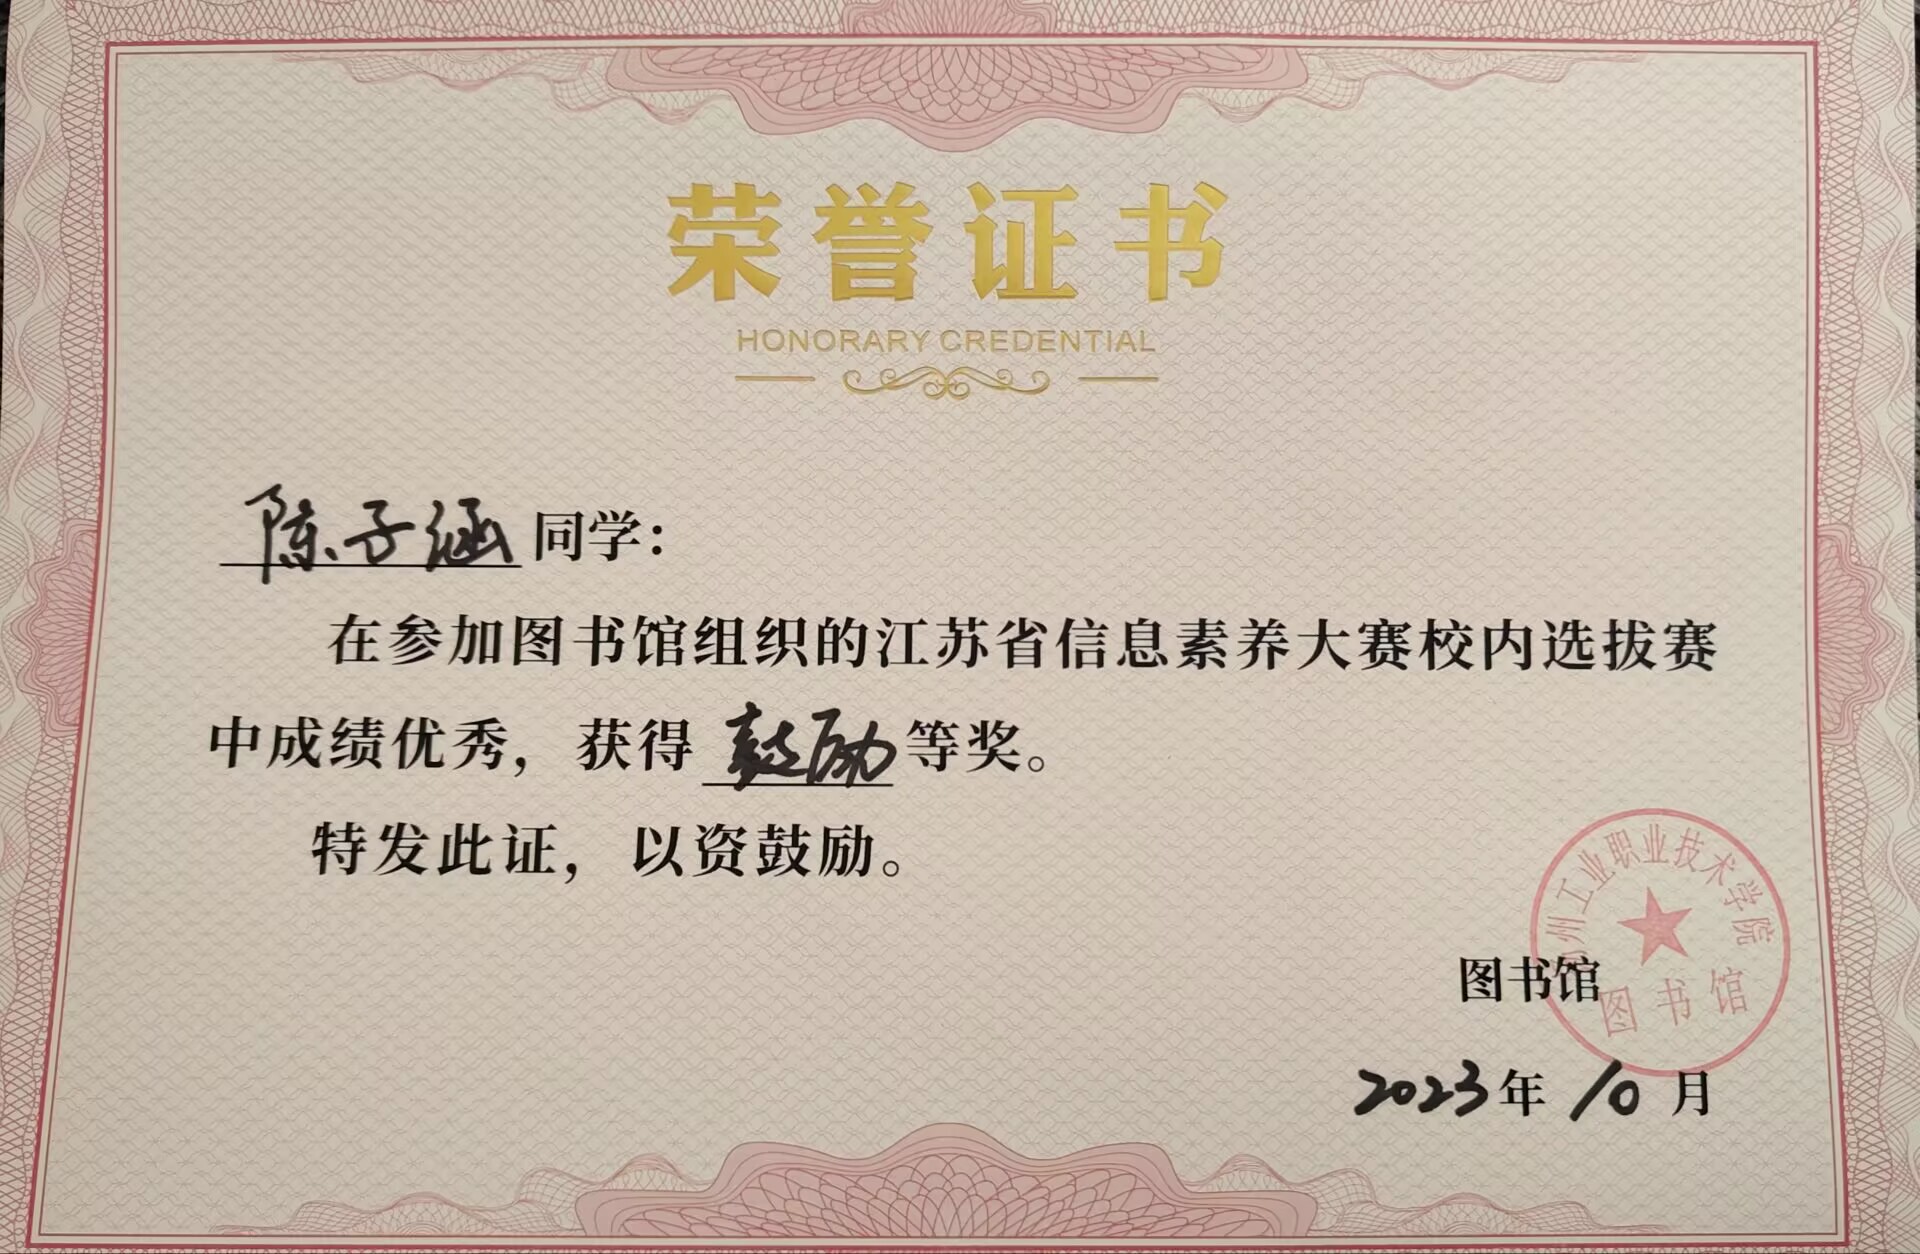 荣誉证书
HONORARY CREDENTIAL
陈子涵同学：
在参加图书馆组织的江苏省信息素养大赛校内选拔赛
中成绩优秀，获得鼓励等奖。
特发此证，以资鼓励。
州工业职业技术学院
图书馆
图书馆
2023年10月